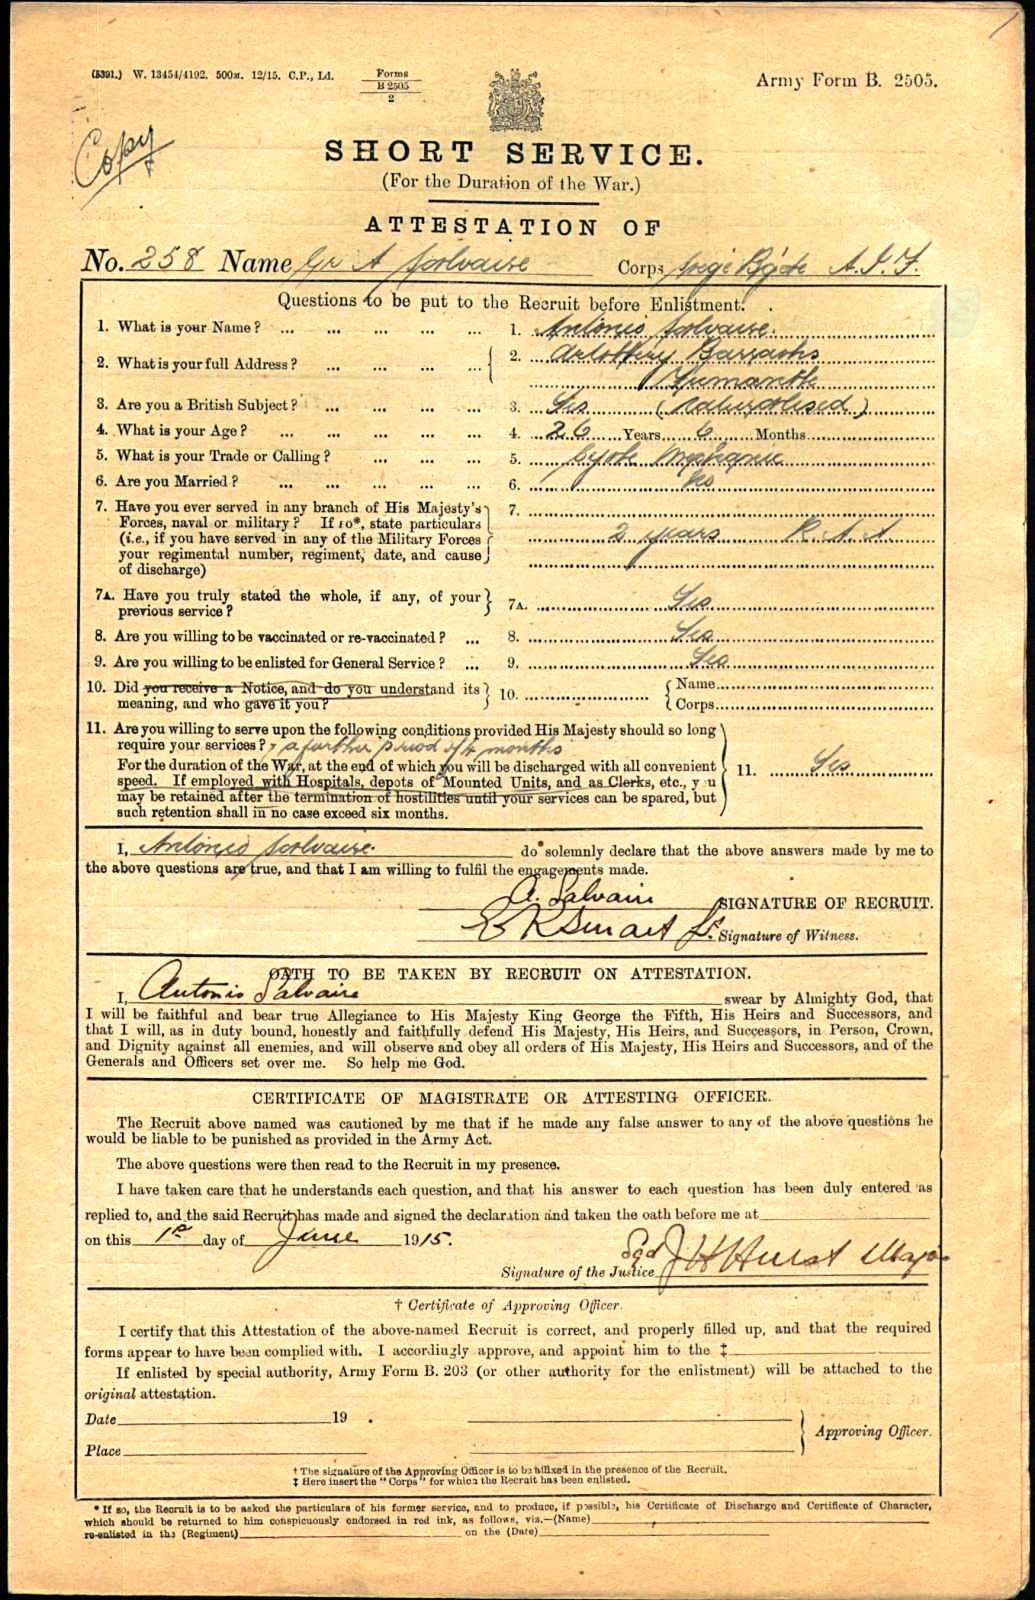 (5391.) W. 13454/4192. 500M. 12/15. C.P., Ld. Forms B 2505 2 Army Form B. 2505.
Copy
SHORT SERVICE.
(For the Duration of the War.)
ATTESTATION OF
No. 258 Name Gr A Salvaire Corps Siege Bgde A.I.F.
Questions to be put to the Recruit before Enlistment.
1. What is your Name? ... ... ... ... ... 1. Antonio Salvaire.
2. What is your full Address? ... ... ... ... 2. Artillery Barracks
Fremantle
3. Are you a British Subject? ... ... ... ... 3. Yes (Naturalised)
4. What is your Age? ... ... ... ... ... 4. 26 Years 6 Months
5. What is your Trade or Calling? ... ... ... 5. Cycle Mechanic
6. Are you Married? ... ... ... ... ... 6.
7. Have you ever served in any branch of His Majesty's 7.
Forces, naval or military? If so*, state particulars 2 years R.A.A
(i.e., if you have served in any of the Military Forces
your regimental number, regiment, date, and cause
of discharge)
7A. Have you truly stated the whole, if any, of your 7A. Yes
previous service?
8. Are you willing to be vaccinated or re-vaccinated? ... 8. Yes
9. Are you willing to be enlisted for General Service? ... 9. Yes
10. Did you receive a Notice, and do you understand its 10. Name
meaning, and who gave it you? Corps
11. Are you willing to serve upon the following conditions provided His Majesty should so long
require your services? & a further period of 4 months
For the duration of the War, at the end of which you will be discharged with all convenient 11. Yes
speed. If employed with Hospitals, depots of Mounted Units, and as Clerks, etc., you
may be retained after the termination of hostilities until your services can be spared, but
such retention shall in no case exceed six months.
I, Antonio Salvaire. do solemnly declare that the above answers made by me to
the above questions are true, and that I am willing to fulfil the engagements made.
A. Salvaire SIGNATURE OF RECRUIT.
E R Smart Lt. Signature of Witness.
OATH TO BE TAKEN BY RECRUIT ON ATTESTATION.
I, Antonio Salvaire swear by Almighty God, that
I will be faithful and bear true Allegiance to His Majesty King George the Fifth, His Heirs and Successors, and
that I will, as in duty bound, honestly and faithfully defend His Majesty, His Heirs, and Successors, in Person, Crown,
and Dignity against all enemies, and will observe and obey all orders of His Majesty, His Heirs and Successors, and of the
Generals and Officers set over me. So help me God.
CERTIFICATE OF MAGISTRATE OR ATTESTING OFFICER.
The Recruit above named was cautioned by me that if he made any false answer to any of the above questions he
would be liable to be punished as provided in the Army Act.
The above questions were then read to the Recruit in my presence.
I have taken care that he understands each question, and that his answer to each question has been duly entered as
replied to, and the said Recruit has made and signed the declaration and taken the oath before me at
on this 1st day of June 1915.
Sgd J H Hurst Major
Signature of the Justice
† Certificate of Approving Officer.
I certify that this Attestation of the above-named Recruit is correct, and properly filled up, and that the required
forms appear to have been complied with. I accordingly approve, and appoint him to the ‡
If enlisted by special authority, Army Form B. 203 (or other authority for the enlistment) will be attached to the
original attestation.
Date 19 .
Approving Officer.
Place
† The signature of the Approving Officer is to be affixed in the presence of the Recruit.
‡ Here insert the "Corps" for which the Recruit has been enlisted.
* If so, the Recruit is to be asked the particulars of his former service, and to produce, if possible, his Certificate of Discharge and Certificate of Character,
which should be returned to him conspicuously endorsed in red ink, as follows, viz.—(Name)
re-enlisted in the (Regiment) on the (Date)